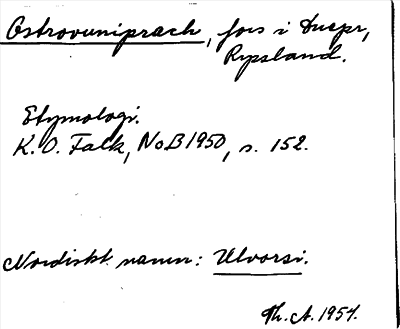 Ostrovuniprach, fors i Dnepr,
Ryssland.
Etymologi.
K.O. Falk, NoB 1950, s. 152.
Nordiskt namn: Ulvorsi.
Th. A. 1954.